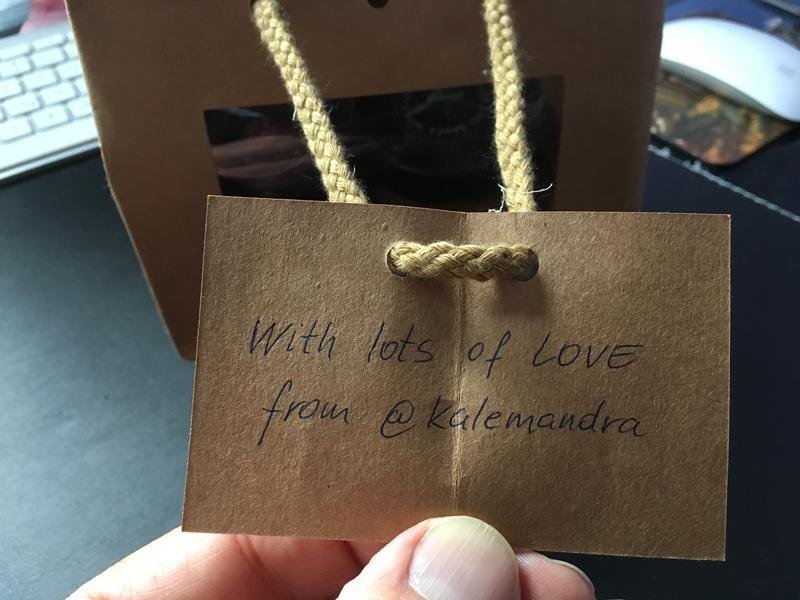 With lots of LOVE
from @kalemandra